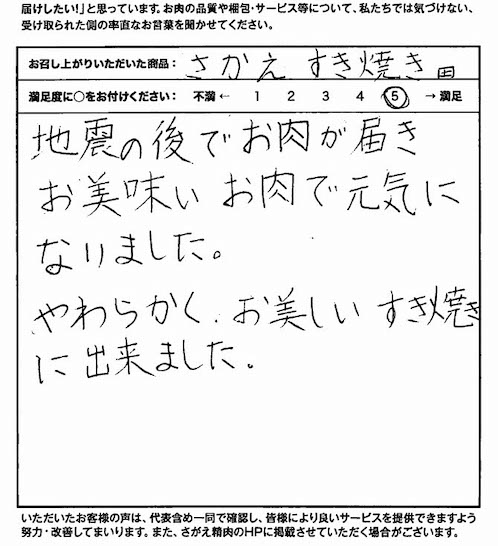 届けしたい!」と思っています。お肉の品質や梱包・サービス等について、私たちでは気づけない、
受け取られた側の率直なお言葉を聞かせてください。
お召し上がりいただいた商品: さかえ すき焼き用
満足度に〇をお付けください: 不満 ← 1 2 3 4 5 → 満足
地震の後でお肉が届き
お美味いお肉で元気に
なりました。
やわらかく、お美しい すき焼き
に出来ました。
いただいたお客様の声は、代表含め一同で確認し、皆様により良いサービスを提供できますよう
努力・改善してまいります。また、さがえ精肉のHPに掲載させていただく場合がございます。